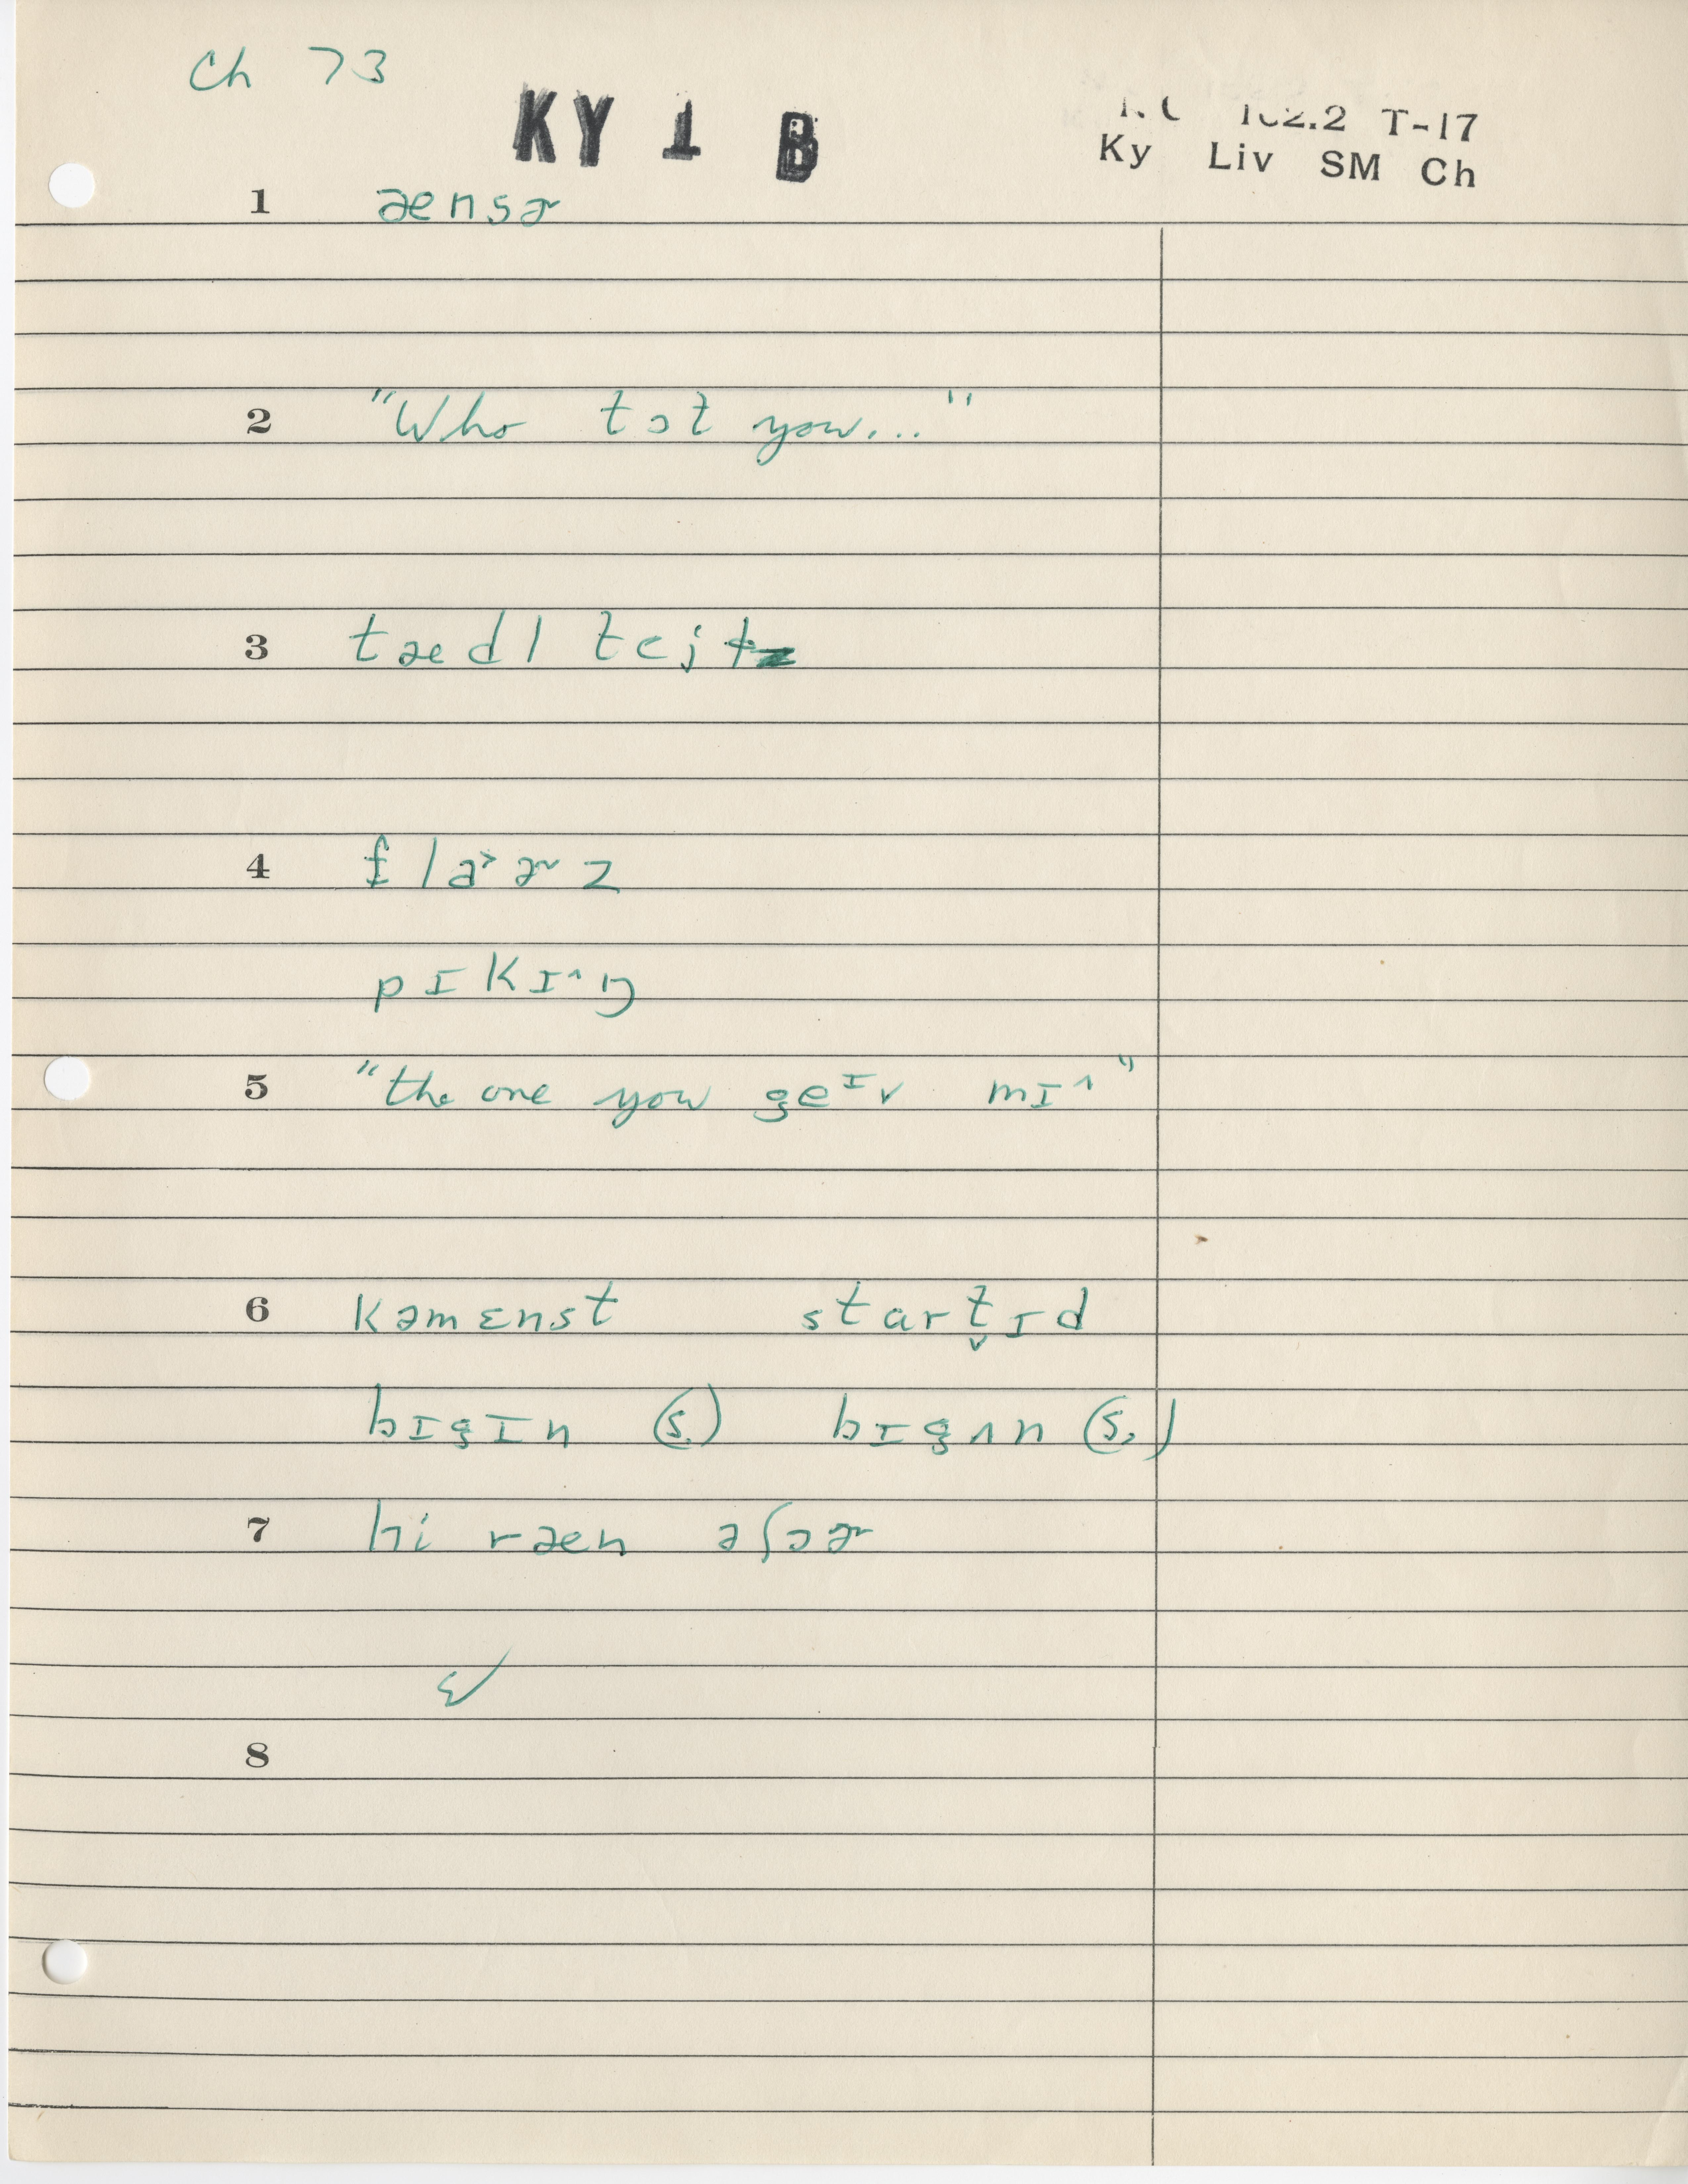 Ch 73
KY 1 B
102.2 T-17
Ky Liv SM Ch
1 ænsɚ
2 "Who tɔt you..."
3 tædl
4 fla˃ɚz
pɪkɪ^ŋ
5 "the one you geᶦv mɪ^"
6 kəmɛnst startˬɪd
bɪgɪn (s.) bɪgʌn (s.)
7 hi ræn əʃɔɚ
8